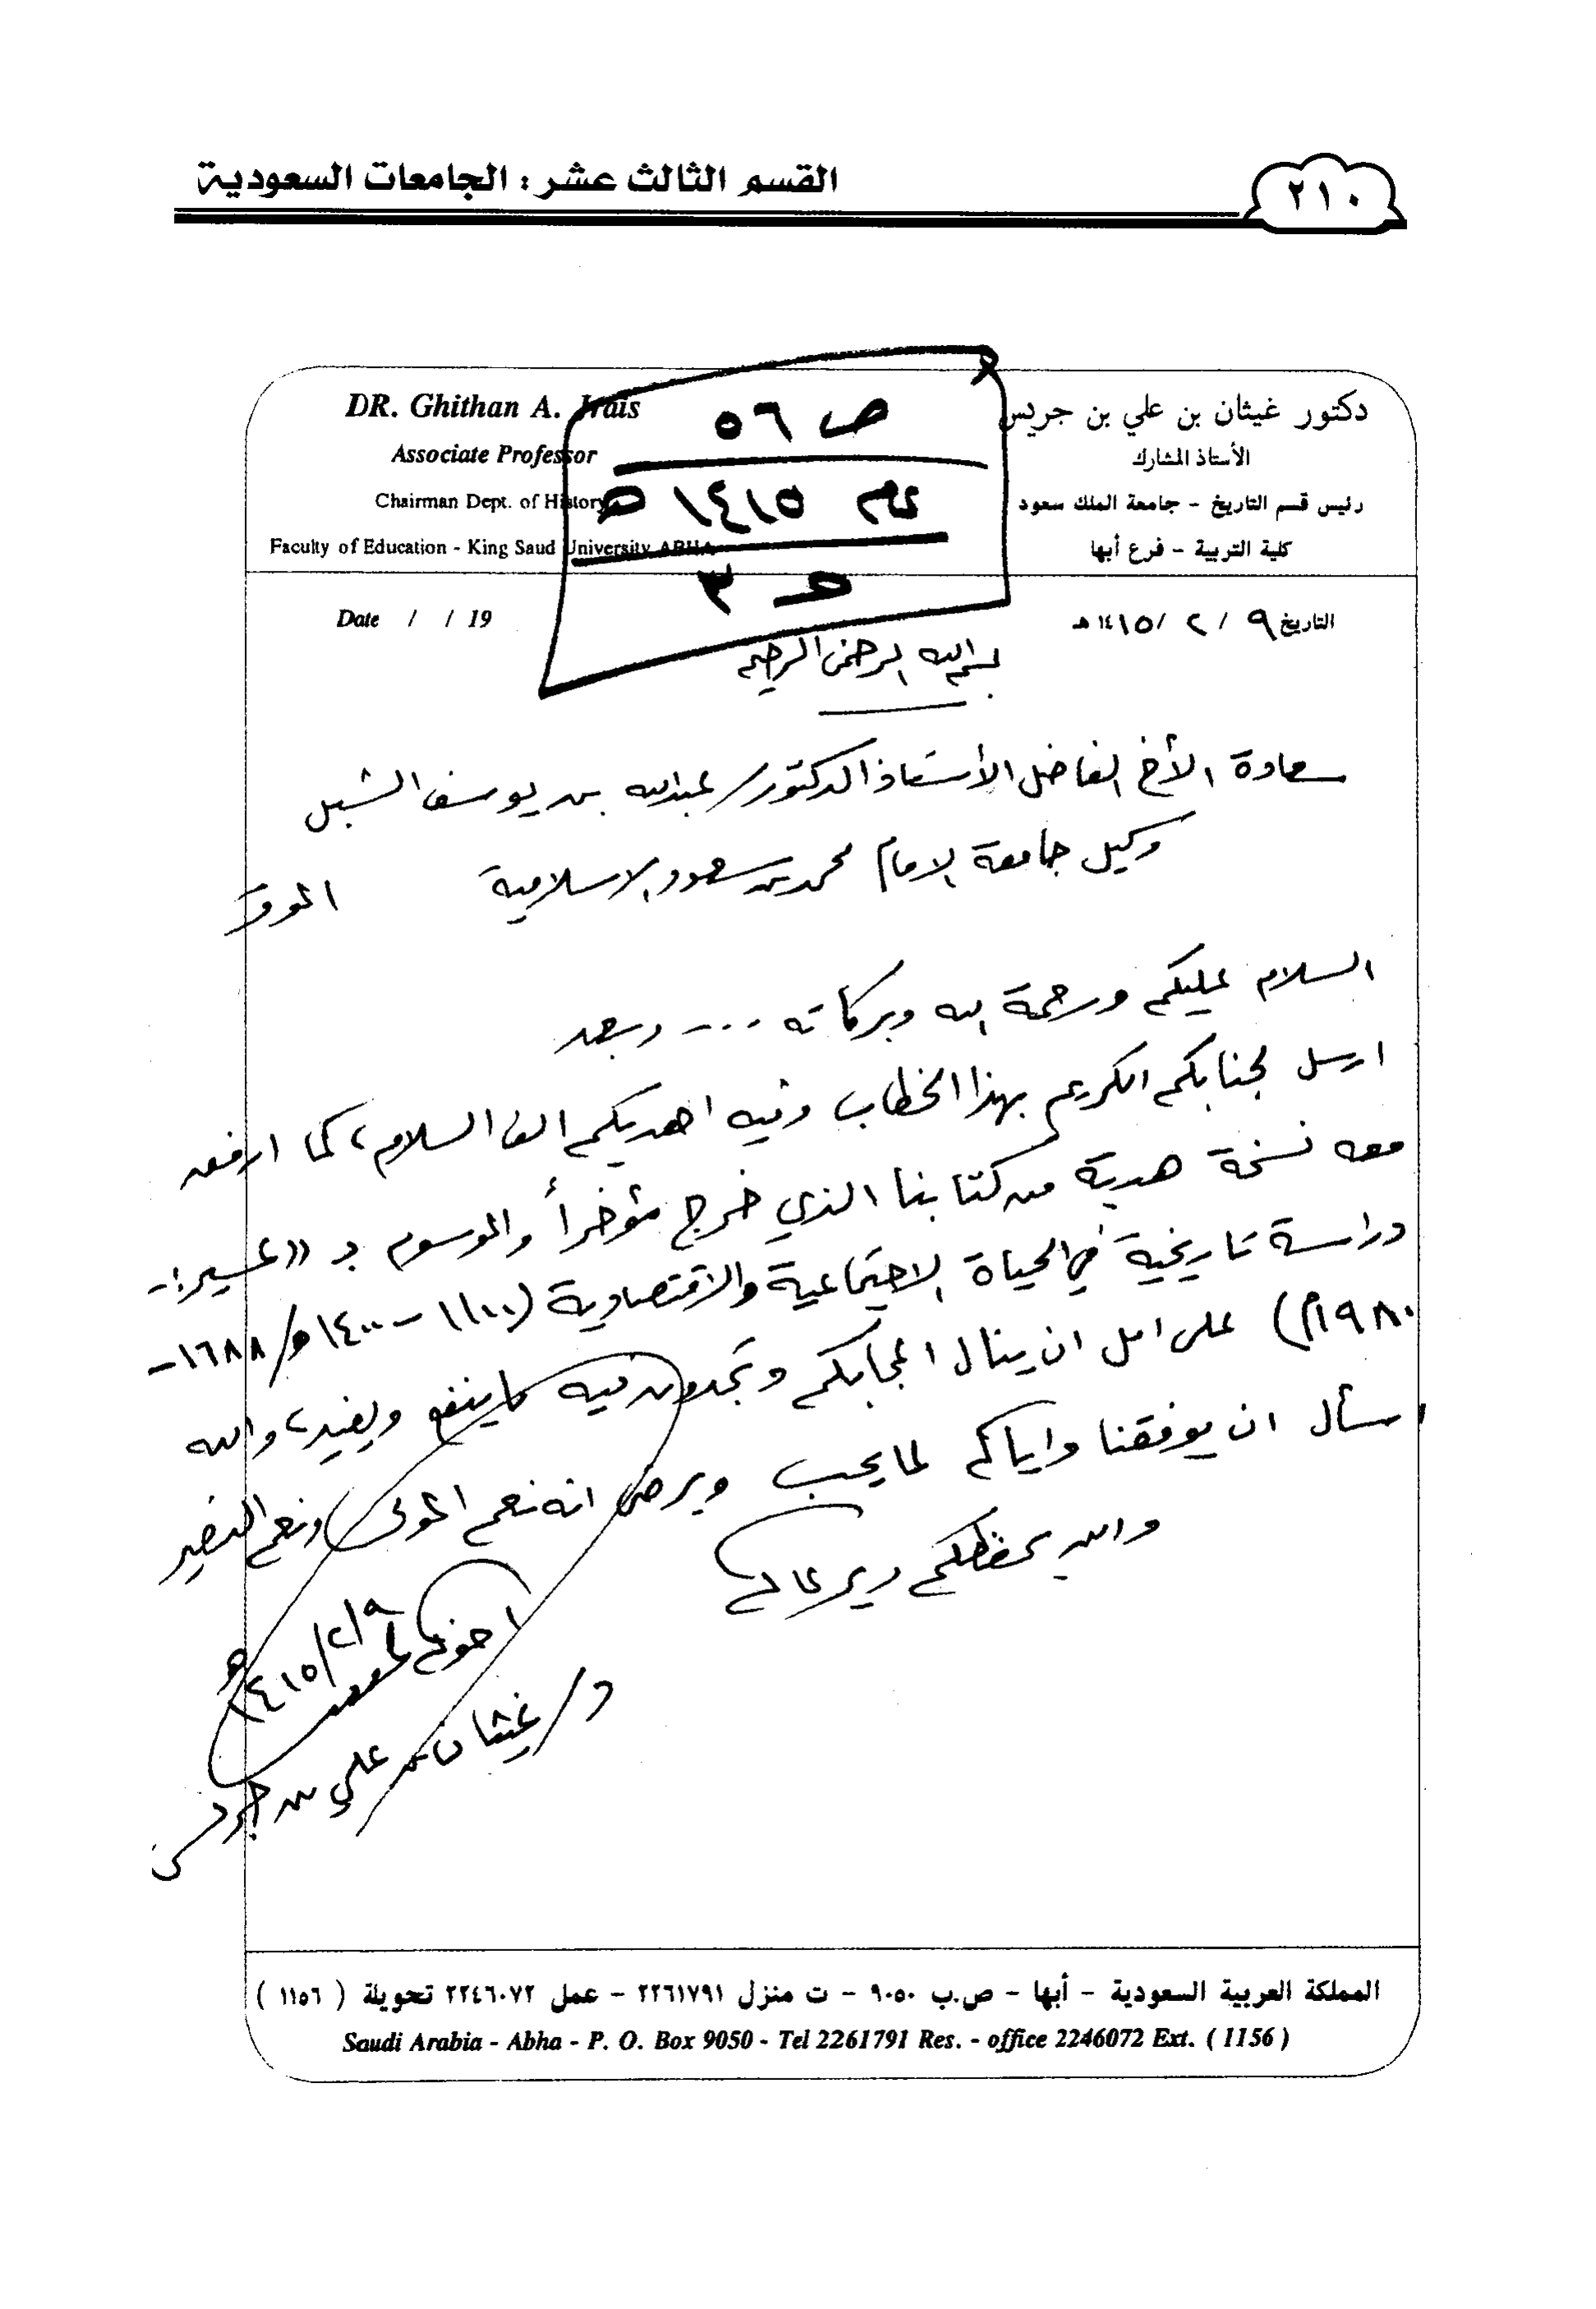 القسم الثالث عشر : الجامعات السعودية
٢١٠
DR. Ghithan A. Jrais
Associate Professor
Chairman Dept. of History
Faculty of Education - King Saud University ABHA
دكتور غيثان بن علي بن جريس
الأستاذ المشارك
رئيس قسم التاريخ - جامعة الملك سعود
كلية التربية - فرع أبها
ص ٥٦
١٤١٥ هـ
حـ ٣
Date / / 19
التاريخ ٩ / ٢ / ١٤١٥ هـ
بسم الله الرحمن الرحيم
سعادة الأخ الفاضل الأستاذ الدكتور/ عبدالله بن يوسف الشبل
وكيل جامعة الامام محمد بن سعود الاسلامية الموقر
السلام عليكم ورحمة الله وبركاته .... وبعد
ارسل لجنابكم الكريم بهذا الخطاب وفيه اهديكم الف السلام، كما ارفق
معه نسخة هدية من كتابنا الذي خرج مؤخراً والموسوم بـ «عسير:-
دراسة تاريخية في الحياة الاجتماعية والاقتصادية (١١٠٠-١٤٠٠هـ/١٦٨٨-
١٩٨٠م) على امل ان ينال اعجابكم وتجدون فيه ما ينفع ويفيد، والله
اسأل ان يوفقنا واياكم لما يحب ويرضى انه نعم المولى ونعم النصير
والله يحفظكم ويرعاكم
اخوكم
٩/٢/١٤١٥هـ
د/ غيثان بن علي بن جريس
المملكة العربية السعودية - أبها - ص.ب ٩٠٥٠ - ت منزل ٢٢٦١٧٩١ - عمل ٢٢٤٦٠٧٢ تحويلة ( ١١٥٦ )
Saudi Arabia - Abha - P. O. Box 9050 - Tel 2261791 Res. - office 2246072 Ext. ( 1156 )